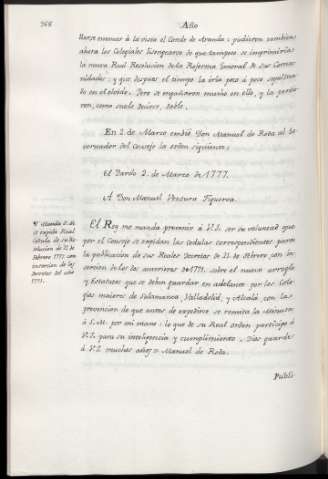 366
Año
llarse menos à la vista el Conde de Aranda; pudieron tambien
ahora los Colegiales lisongearse de que tampoco se imprimiría
la nueva Real Resolucion de la Reforma General de sus Comu
nidades; y que despues el tiempo la iria poco á poco sepultan-
do en el olvido. Pero se engañaron mucho en ello, y la perdie
ron, como suele decirse, doble.
En 2 de Marzo embió Don Manuel de Roda al Go-
vernador del Consejo la orden siguiente:
El Pardo 2. de Marzo de 1777.
A Don Manuel Ventura Figueroa.
El Rey me manda prevenir á V.I. ser su voluntad que
por el Consejo se expidan las Cedulas correspondientes para
la publicacion de sus Reales Decretos de 21 de Febrero, con in-
sercion de los anteriores de 1771. sobre el nuevo arreglo
y Estatutos que se deben guardar en adelante por los Cole-
gios maiores de Salamanca, Valladolid, y Alcalá, con la
prevencion de que antes de expedirse se remita la Minuta
á S.M. por mi mano: lo que de su Real orden participo á
V.I. para su inteligencia y cumplimiento. Dios guarde
á V.I. muchos años = Manuel de Roda.
Manda S.M.
se expida Real
Cedula de su Re
solucion de 21 de
Febrero 1777. con
insercion de los
Decretos del año
1771.
Publi